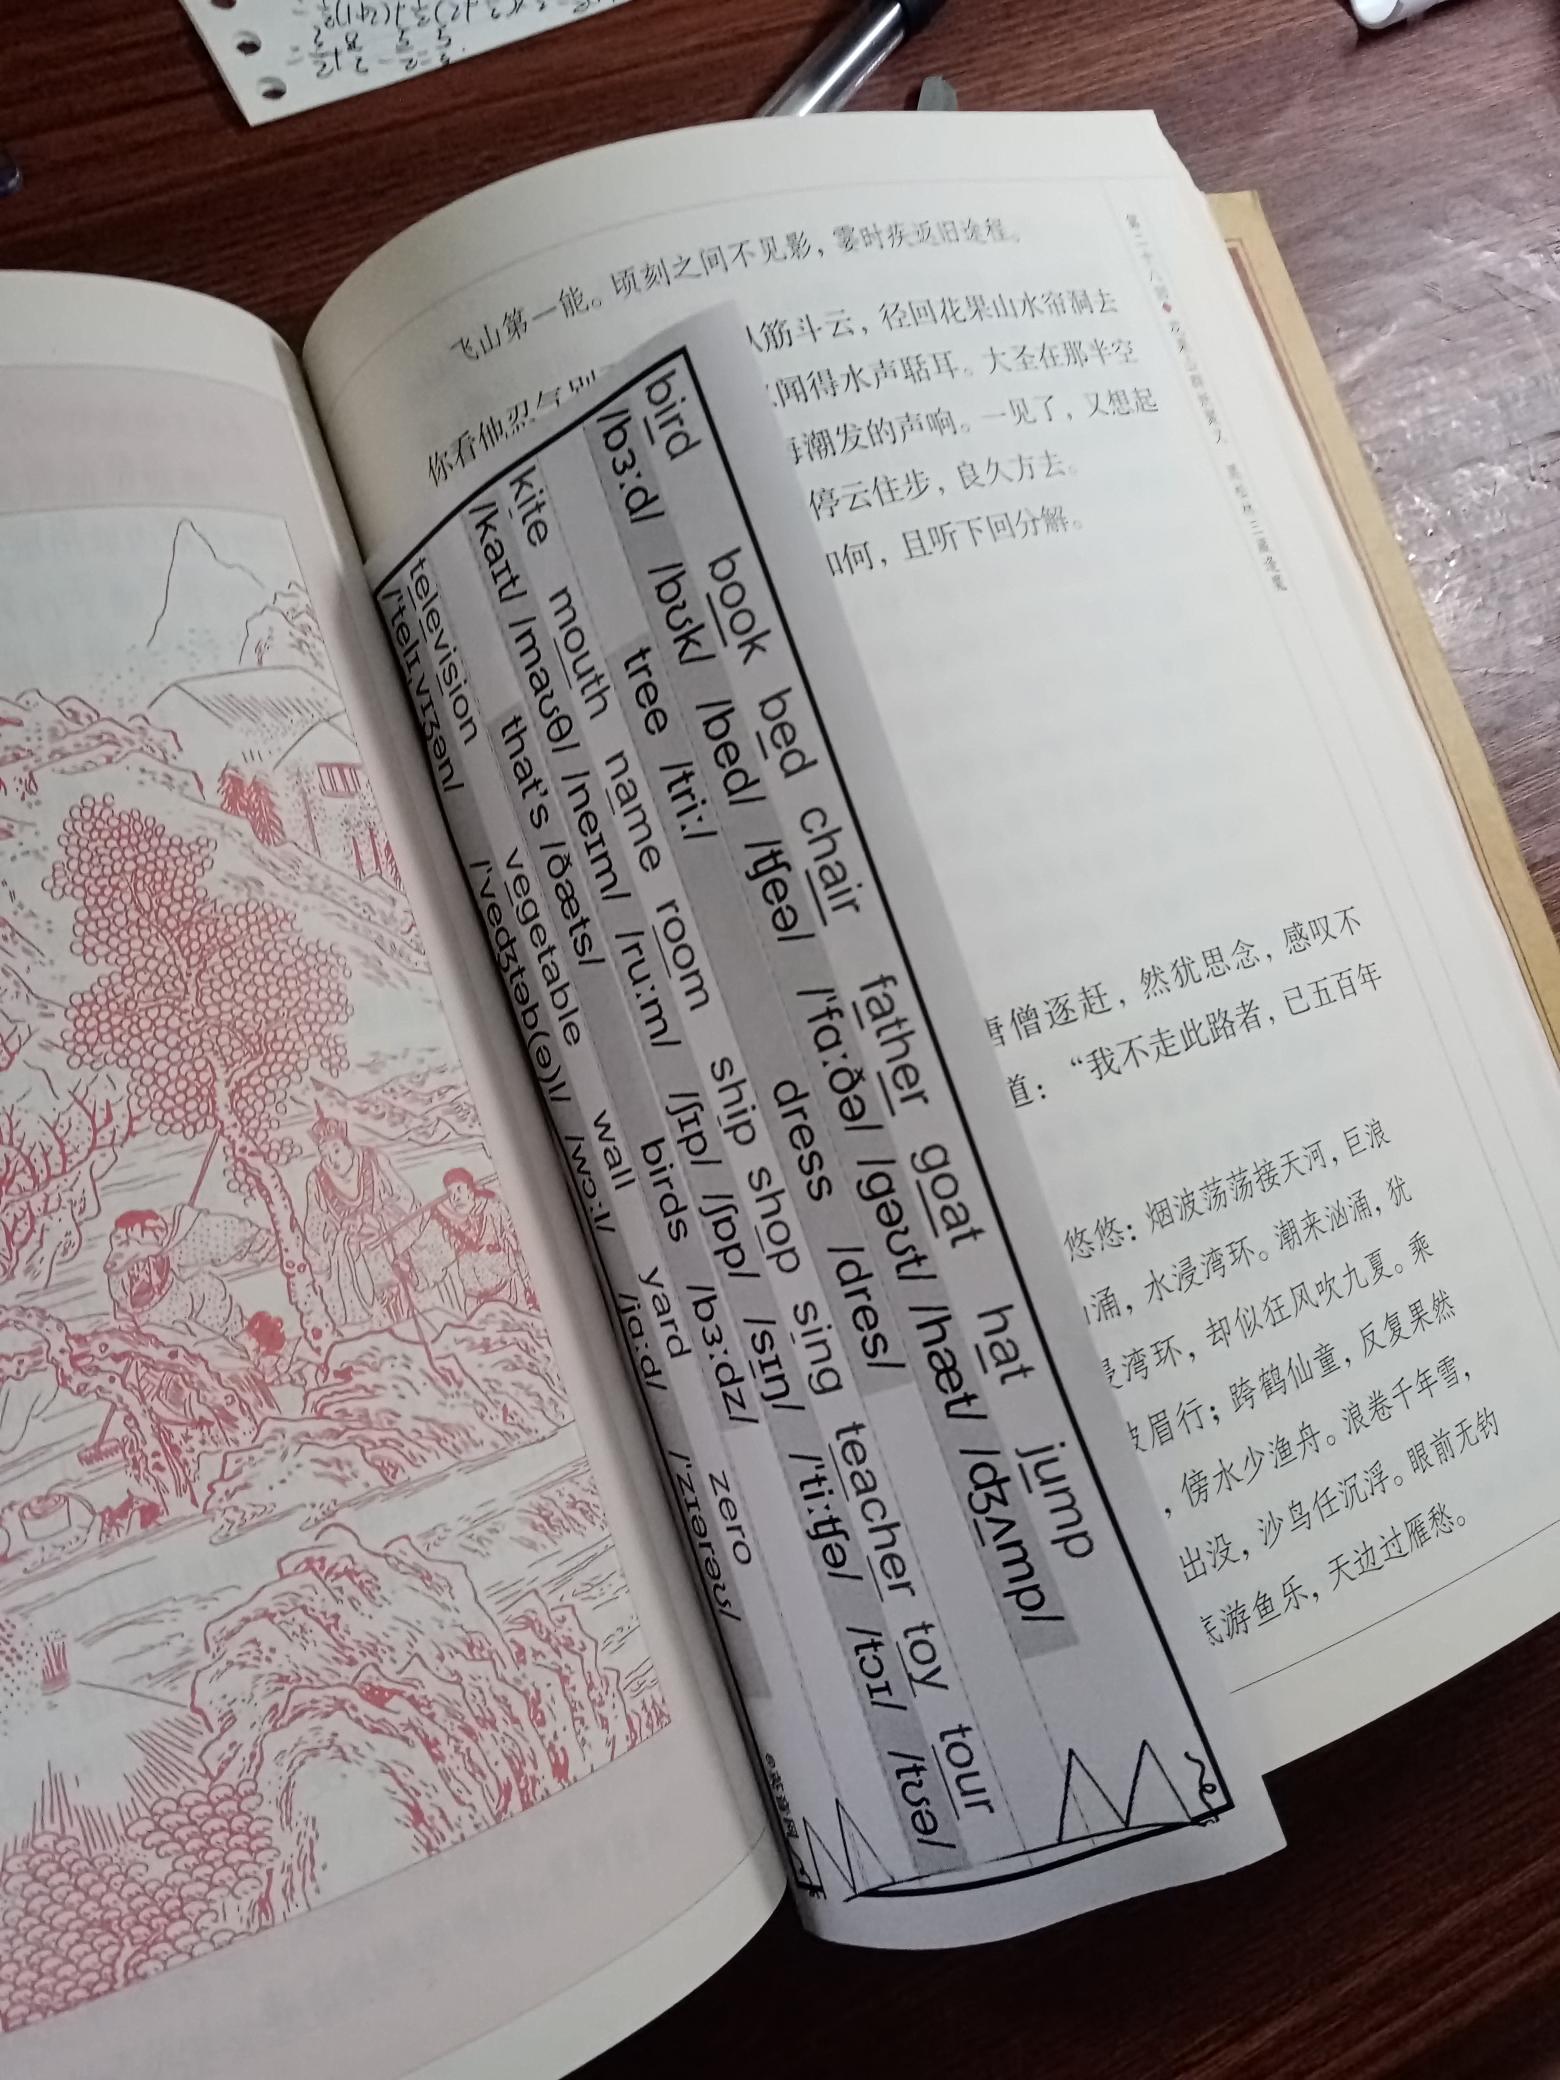 飞山第一能。顷刻之间不见影，霎时疾返旧途程。
你看他忍气别
筋斗云，径回花果山水帘洞去
闻得水声聒耳。大圣在那半空
海潮发的声响。一见了，又想起
停云住步，良久方去。
如何，且听下回分解。
唐僧逐赶，然犹思念，感叹不
道：“我不走此路者，已五百年
悠悠：烟波荡荡接天河，巨浪
涌，水浸湾环。潮来汹涌，犹
浸湾环，却似狂风吹九夏。乘
眉行；跨鹤仙童，反复果然
，傍水少渔舟。浪卷千年雪，
出没，沙鸟任沉浮。眼前无钓
底游鱼乐，天边过雁愁。
bird book bed chair father goat hat jump
/bɜːd/ /bʊk/ /bed/ /tʃeə/ /ˈfɑːðə/ /ɡəʊt/ /hæt/ /dʒʌmp/
tree /triː/ dress /dres/
kite mouth name room ship shop sing teacher toy tour
/kaɪt/ /maʊθ/ /neɪm/ /ruːm/ /ʃɪp/ /ʃɒp/ /sɪŋ/ /ˈtiːtʃə/ /tɔɪ/ /tʊə/
that's /ðæts/ birds /bɜːdz/
television vegetable wall yard zero
/ˈtelɪˌvɪʒən/ /ˈvedʒtəb(ə)l/ /wɔːl/ /jɑːd/ /ˈzɪərəʊ/